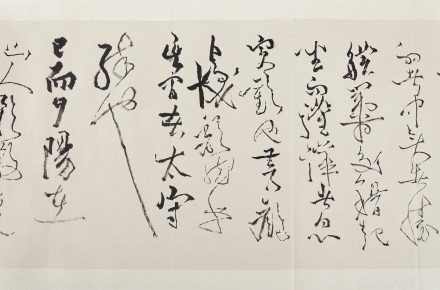 射者中奕者勝
觥籌交錯起
坐而諠譁者眾
賓歡也蒼顏
白髮頹然乎
其間者太守
醉也
已而夕陽在
山人影散